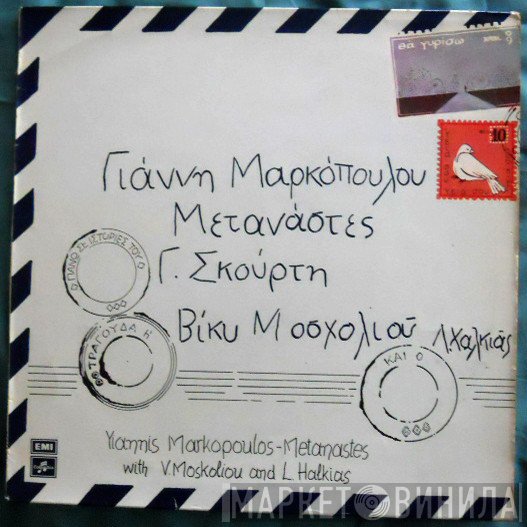 θα γυρίσω
10
Γιάννη Μαρκόπουλου
Μετανάστες
Γ. Σκούρτη
Βίκυ Μοσχολιού Λ. Χαλκιάς
ΠΑΝΩ ΣΕ ΙΣΤΟΡΙΕΣ ΤΟΥ
ΤΡΑΓΟΥΔΑ Η
ΚΑΙ Ο
EMI
Columbia
Yiannis Markopoulos-Metanastes
with V. Moskoliou and L. Halkias
МАРКЕТ ВИНИЛА